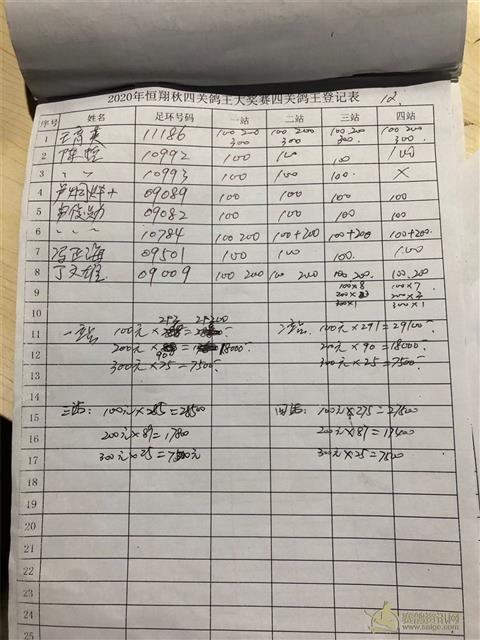 2020年恒翔秋四关鸽王大奖赛四关鸽王登记表 12.
序号 姓名 足环号码 一站 二站 三站 四站
1 11186 100 200 300 100 200 300 100 200 300 100 200 300
2 10992 100 100 100 100
3 〃 〃 10993 100 100 100 ×
4 09089 100 100 100 100
5 09082 100 100 100 100
6 〃 〃 〃 10784 100 200 100+200 100+200 100+200
7 冯正海 09501 100 100 100 100
8 丁文程 09009 100 200 100 200 100 200 100 200
9 100×8 100×7
300×1 300×1
10
11 一站: 100元× 二站: 100元×291=29100
12 200元× 90 18000 200元×90=18000
13 300元×25=7500 300元×25=7500
14
15 三站: 100元×285=28500 四站: 100元×275=27500
16 200元×89=1780 200元×87=17400
17 300元×25=7500元 300元×25=7500
18
19
20
21
22
23
24
25
赛鸽资讯网
www.saige.com